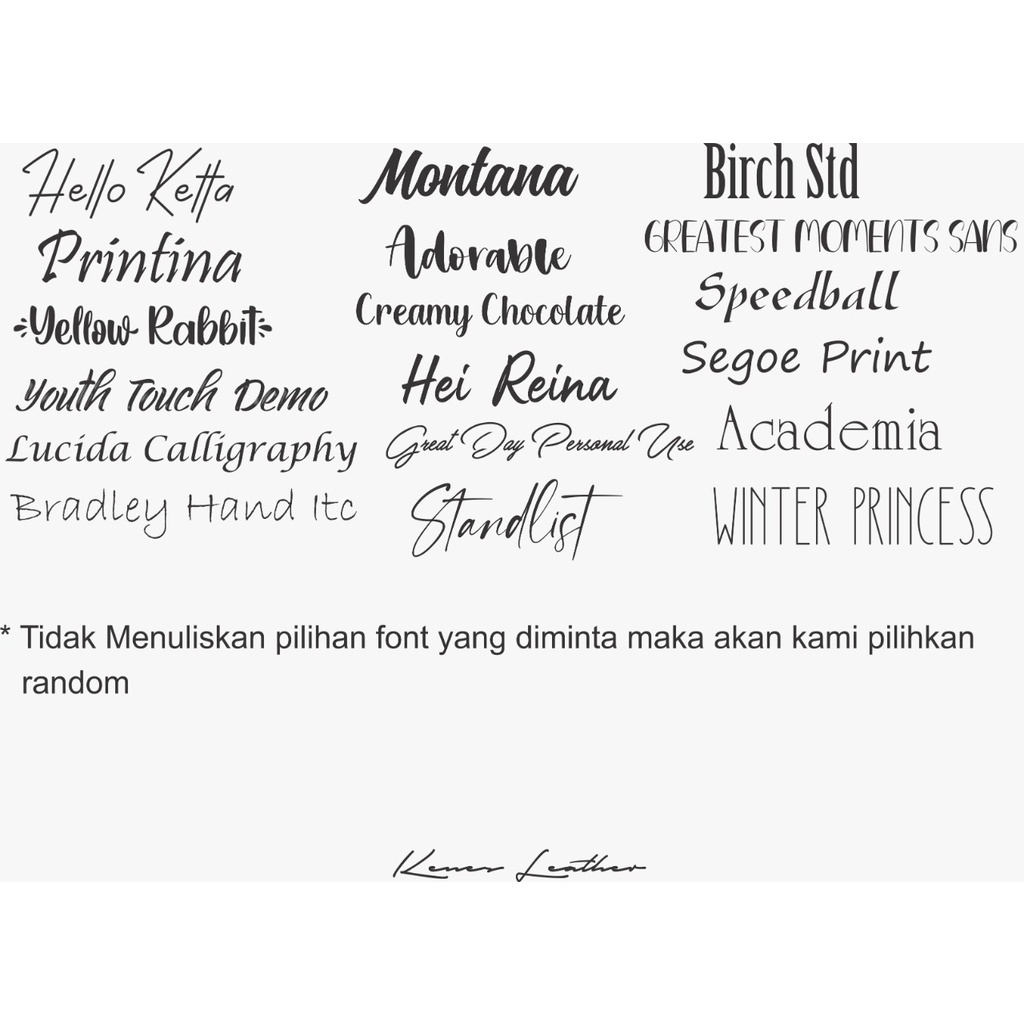 Hello Ketta
Printina
Yellow Rabbit
Youth Touch Demo
Lucida Calligraphy
Bradley Hand Itc
Montana
Adorable
Creamy Chocolate
Hei Reina
Great Day Personal Use
Standlist
Birch Std
GREATEST MOMENTS SANS
Speedball
Segoe Print
Academia
WINTER PRINCESS
* Tidak Menuliskan pilihan font yang diminta maka akan kami pilihkan
random
Kenes Leather